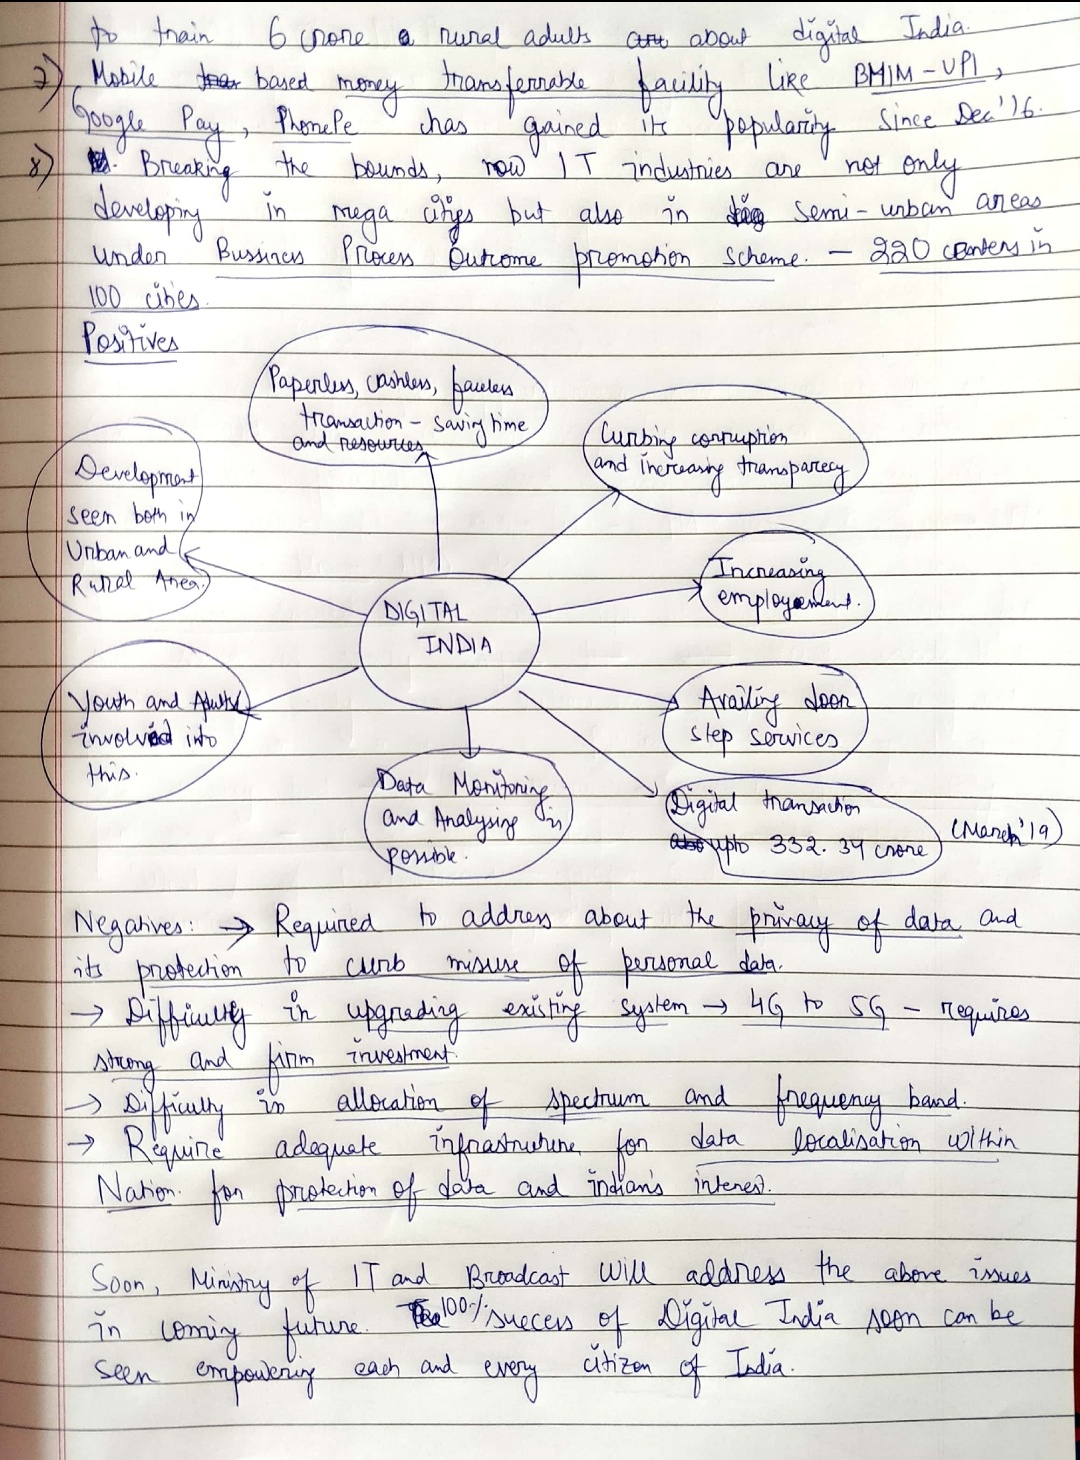 to train 6 crore rural adults about digital India.
7) Mobile based money transferrable facility like BHIM-UPI,
Google Pay, PhonePe has gained its popularity since Dec'16.
8) Breaking the bounds, now IT industries are not only
developing in mega cities but also in semi-urban areas
under Bussiness Process Outcome promotion scheme. - 220 centers in
100 cities.
Positives
Paperless, cashless, faceless
transaction - saving time
and resources
Curbing corruption
and increasing transparecy
Development
seen both in
Urban and
Rural Area.
Increasing
employement.
DIGITAL
INDIA
Youth and Adults
involved into
this.
Availing door
step services
Data Monitoring
and Analysing is
possible.
Digital transaction
upto 332.34 crore
(March'19)
Negatives: → Required to address about the privacy of data and
its protection to curb misuse of personal data.
→ Difficulty in upgrading existing system → 4G to 5G - requires
strong and firm investment.
→ Difficulty in allocation of spectrum and frequency band.
→ Require adequate infrastructure for data localisation within
Nation. for protection of data and indian's interest.
Soon, Ministry of IT and Broadcast will address the above issues
in coming future. 100% success of Digital India soon can be
seen empowering each and every citizen of India.